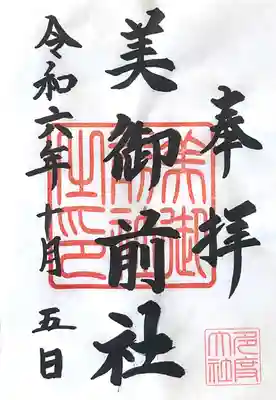 奉拝
美御前社
令和六年十月五日
美御前社之印